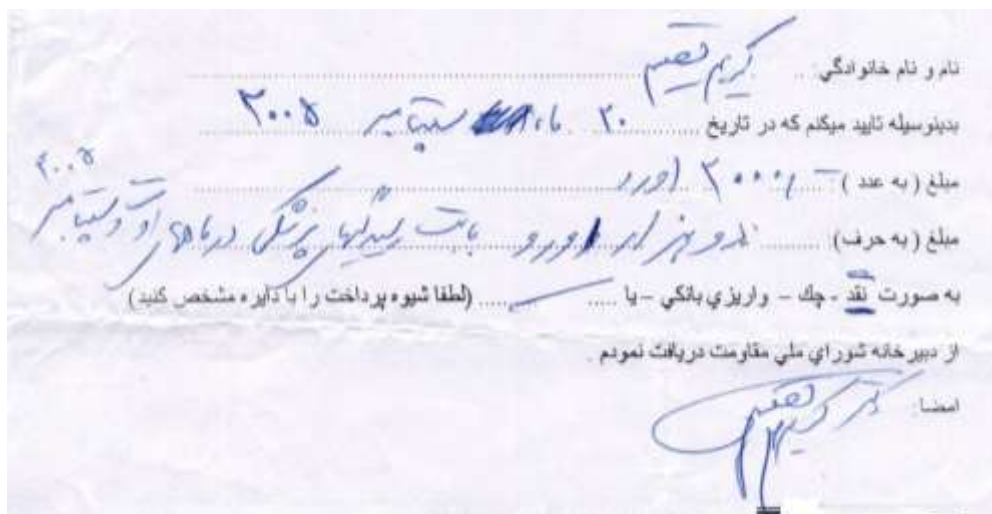 نام و نام خانوادگي: .. کریم قصیم
بدينوسيله تاييد ميکنم که در تاريخ ۳۰ ماه سپتامبر ۲۰۰۵
مبلغ ( به عدد ) : ۲۰۰۰ اورو
۲۰۰۵
مبلغ ( به حرف) دو هزار اورو بابت رسیدگیهای پزشکی در ماههای اوت و سپتامبر
به صورت نقد - چك - واريزي بانکي - يا ..... (لطفا شيوه پرداخت را با دايره مشخص کنيد)
از دبيرخانه شوراي ملي مقاومت دريافت نمودم .
امضا: دکتر کریم قصیم